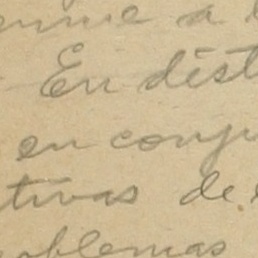 a
En dist
en conju
tivas de
blemas